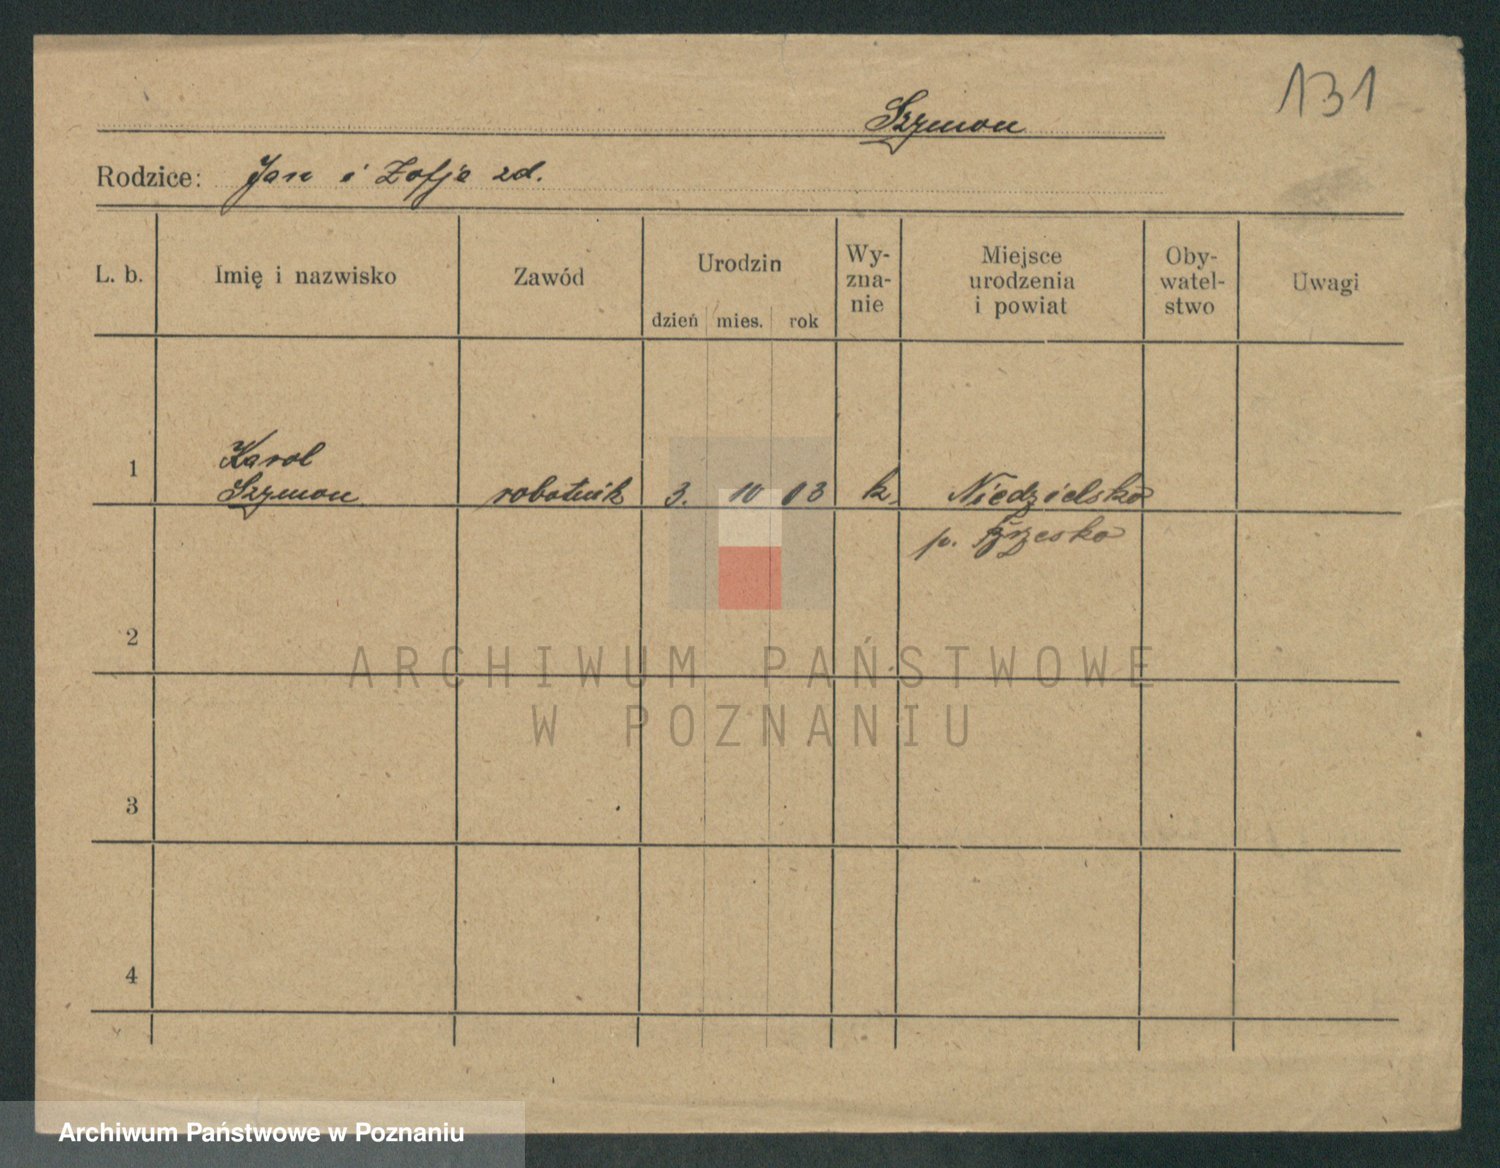 131
Szymon
Rodzice: Jan i Zofja zd.
L. b. Imię i nazwisko Zawód Urodzin dzień mies. rok Wy-zna-nie Miejsce urodzenia i powiat Oby-watel-stwo Uwagi
Karol
1 Szymon robotnik 3. 10 03 k. Niedzielsko
p. Brzesko
2
3
4
ARCHIWUM PAŃSTWOWE
W POZNANIU
Archiwum Państwowe w Poznaniu